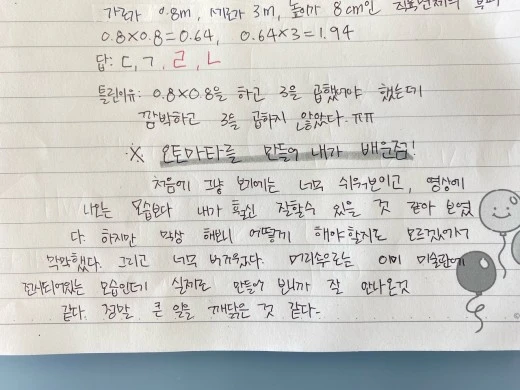 가로가 0.8m, 세로가 3m, 높이가 8cm인 직육면체의 부피
0.8×0.8=0.64, 0.64×3=1.94
답: ㄷ, ㄱ, ㄹ, ㄴ
틀린이유: 0.8×0.8을 하고 3을 곱했어야 했는데
깜박하고 3을 곱하지 않았다. ㅠㅠ
※ 오토마타를 만들어 내가 배운점!
처음에 그냥 보기에는 너무 쉬워보이고, 영상에
나오는 모습보다 내가 훨씬 잘할수 있을 것 같아 보였
다. 하지만 막상 해보니 어떻게 해야할지도 모르겠어서
막막했다. 그리고 너무 버거웠다. 머리속으로는 이미 미술관에
전시되어있는 모습인데 실제로 만들어 보니까 잘 안나온것
같다. 정말 큰 일을 깨닫은 것 같다.